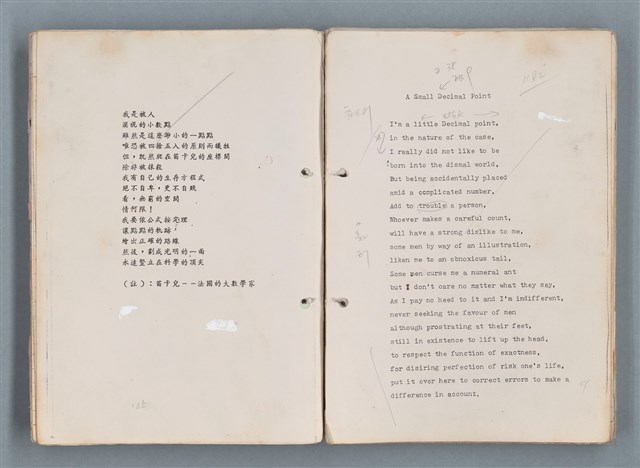 我是被人
漠視的小數點
雖然是這麼渺小的一點點
唯恐被四捨五入的原則而犧牲
但,既然與在笛卡兒的座標間
除好被抹殺
我有自己的生存方程式
絕不自卑,更不自賤
看,無窮的空間
情何限!
我要依公式按定理
讓點點的軌跡
繪出正確的路線
然後,劃成光明的一面
永遠豎立在科學的頂尖
(註):笛卡兒--法國的大數學家
A Small Decimal Point
I'm a little Decimal point,
in the nature of the case,
I really did not like to be
born into the dismal world,
But being accidentally placed
amid a complicated number,
Add to trouble a person,
Whoever makes a careful count,
will have a strong dislike to me,
some men by way of an illustration,
liken me to an obnoxious tail,
Some men curse me a numeral ant
but I don't care no matter what they say,
As I pay no heed to it and I'm indifferent,
never seeking the favour of men
although prostrating at their feet,
still in existence to lift up the head,
to respect the function of exactness,
for disiring perfection of risk one's life,
put it over here to correct errors to make a
difference in account.